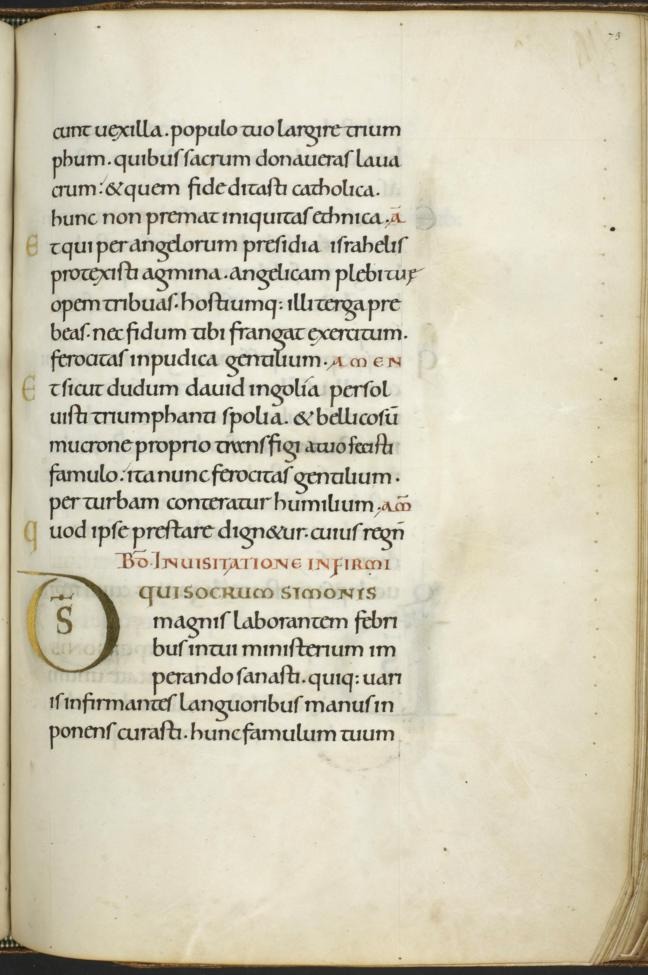 75
cunt uexilla. populo tuo largire trium
phum. quibus sacrum donaueras laua
crum: & quem fide ditasti catholica.
hunc non premat iniquitas ethnica. ā
Et qui per angelorum presidia israhelis
protexisti agmina. angelicam plebi tuę
opem tribuas. hostiumq: illi terga pre
beas. nec fidum tibi frangat exercitum.
ferocitas inpudica gentilium. AMEN
Et sicut dudum dauid in golia persol
uisti triumphanti spolia. & bellicosū
mucrone proprio transfigi a tuo fecisti
famulo. ita nunc ferocitas gentilium.
per turbam conteratur humilium. am̄
quod ipse prestare dign&ur. cuius regn̄
BD̄. IN UISITATIONE INFIRMI
DS̄ QUI SOCRUM SIMONIS
magnis laborantem febri
bus in tui ministerium im
perando sanasti. quiq: uari
is infirmantes languoribus manus in
ponens curasti. hunc famulum tuum